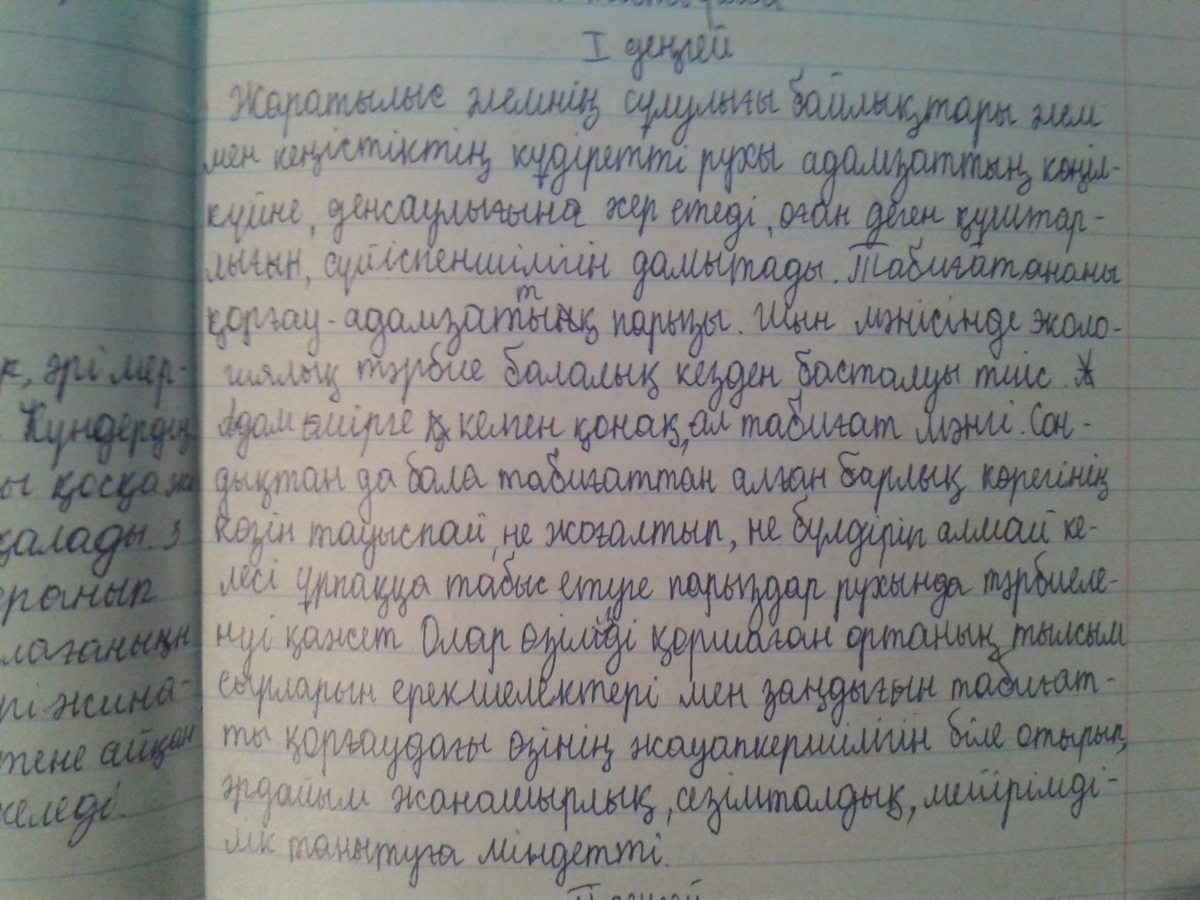 I деңгей
Жаратылыс әлемнің сұлулығы байлықтары әлем
мен кеңістіктің құдіретті рухы адамзаттың көңіл-
күйне, денсаулығына әсер етеді, оған деген құштар-
лығын, сүйіспеншілігін дамытады. Табиғатананы
қорғау - адамзаттық парызы. Шын мәнісінде эколо-
гиялық тәрбие балалық кезден басталуы тиіс.
Адам өмірге келген қонақ, ал табиғат мәңгі. Сон-
дықтан да бала табиғаттан алған барлық көрегінің
көзін тауыспай, не жоғалтып, не бүлдіріп алмай ке-
лесі ұрпаққа табыс етуге парыздар рухында тәрбиеле-
нуі қажет Олар өзіміңді қоршаған ортаның тылсым
сырларын ерекшелектері мен заңдығын табиғат-
ты қорғаудағы өзінің жауапкершілігін біле отырып,
әрдайым жанашырлық, сезімталдық, мейірімді-
лік танытуға міндетті.
әрі мер-
Күндердің
қосқа
қалады. 3
ранып
лағанының
рі жина-
тене айқан
келеді.